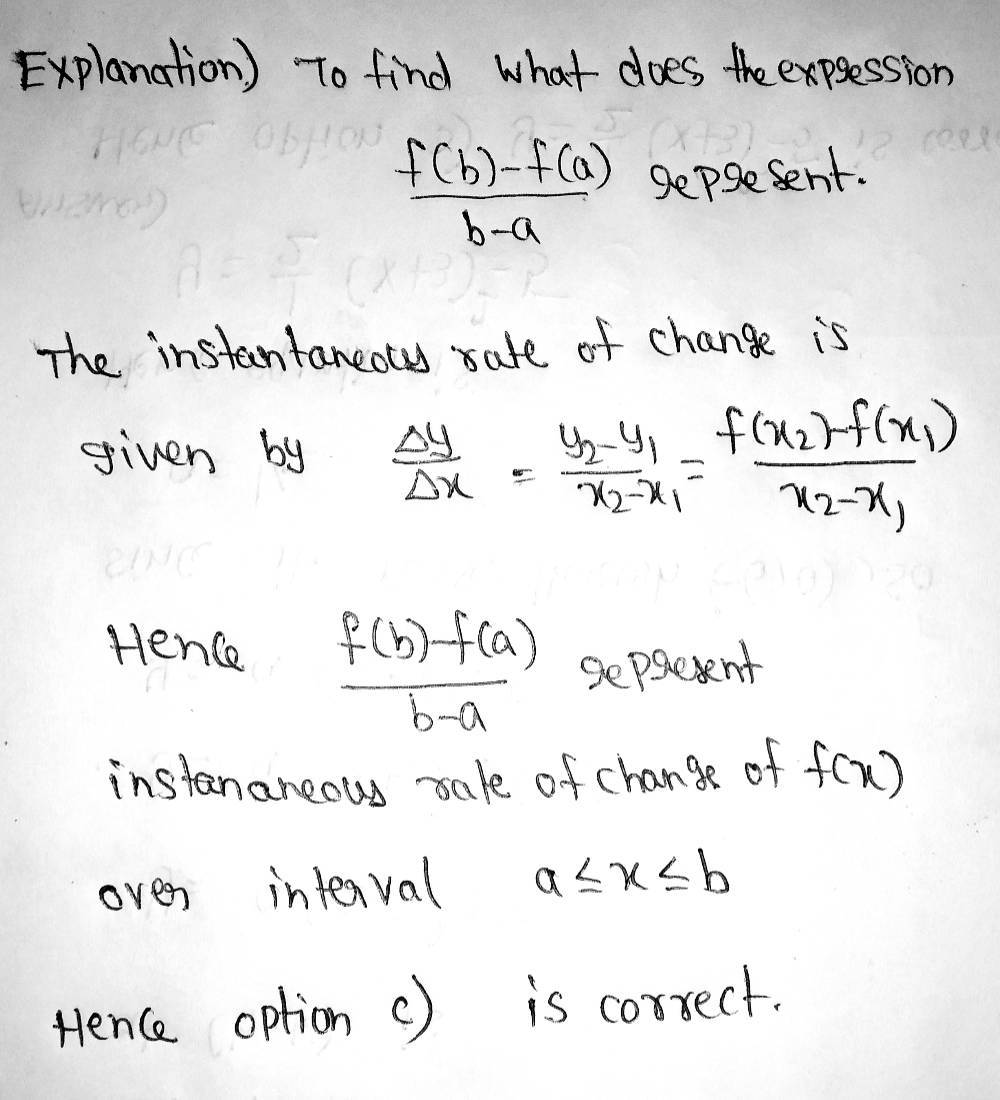 Explanation) To find what does the expression
f(b)-f(a) / b-a represent.
The instantaneous rate of change is
given by Δy/Δx = y₂-y₁ / x₂-x₁ = f(x₂)-f(x₁) / x₂-x₁
Hence f(b)-f(a) / b-a represent
instananeous rate of change of f(x)
over interval a≤x≤b
Hence option c) is correct.